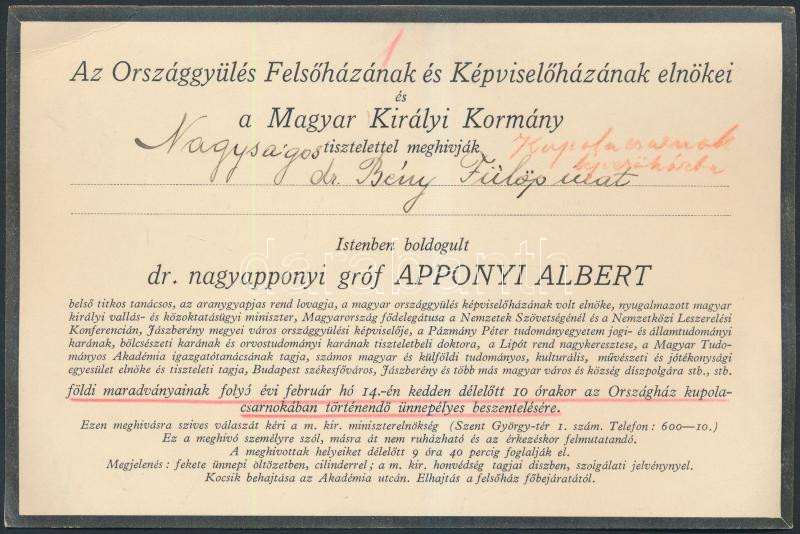 Az Országgyülés Felsőházának és Képviselőházának elnökei
és
a Magyar Királyi Kormány
Nagyságos tisztelettel meghivják Kupolacsarnok
dr. Bény Fülöp urat
Istenben boldogult
dr. nagyapponyi gróf APPONYI ALBERT
belső titkos tanácsos, az aranygyapjas rend lovagja, a magyar országgyülés képviselőházának volt elnöke, nyugalmazott magyar
királyi vallás- és közoktatásügyi miniszter, Magyarország fődelegátusa a Nemzetek Szövetségénél és a Nemzetközi Leszerelési
Konferencián, Jászberény megyei város országgyülési képviselője, a Pázmány Péter tudományegyetem jogi- és államtudományi
karának, bölcsészeti karának és orvostudományi karának tiszteletbeli doktora, a Lipót rend nagykeresztese, a Magyar Tudo-
mányos Akadémia igazgatótanácsának tagja, számos magyar és külföldi tudományos, kulturális, művészeti és jótékonysági
egyesület elnöke és tiszteleti tagja, Budapest székesfőváros, Jászberény és több más magyar város és község diszpolgára stb., stb.
földi maradványainak folyó évi február hó 14.-én kedden délelőtt 10 órakor az Országház kupola-
csarnokában történendő ünnepélyes beszentelésére.
Ezen meghivásra szives válaszát kéri a m. kir. miniszterelnökség (Szent György-tér 1. szám. Telefon : 600—10.)
Ez a meghivó személyre szól, másra át nem ruházható és az érkezéskor felmutatandó.
A meghivottak helyeiket délelőtt 9 óra 40 percig foglalják el.
Megjelenés : fekete ünnepi öltözetben, cilinderrel ; a m. kir. honvédség tagjai diszben, szolgálati jelvénynyel.
Kocsik behajtása az Akadémia utcán. Elhajtás a felsőház főbejáratától.
darabanth